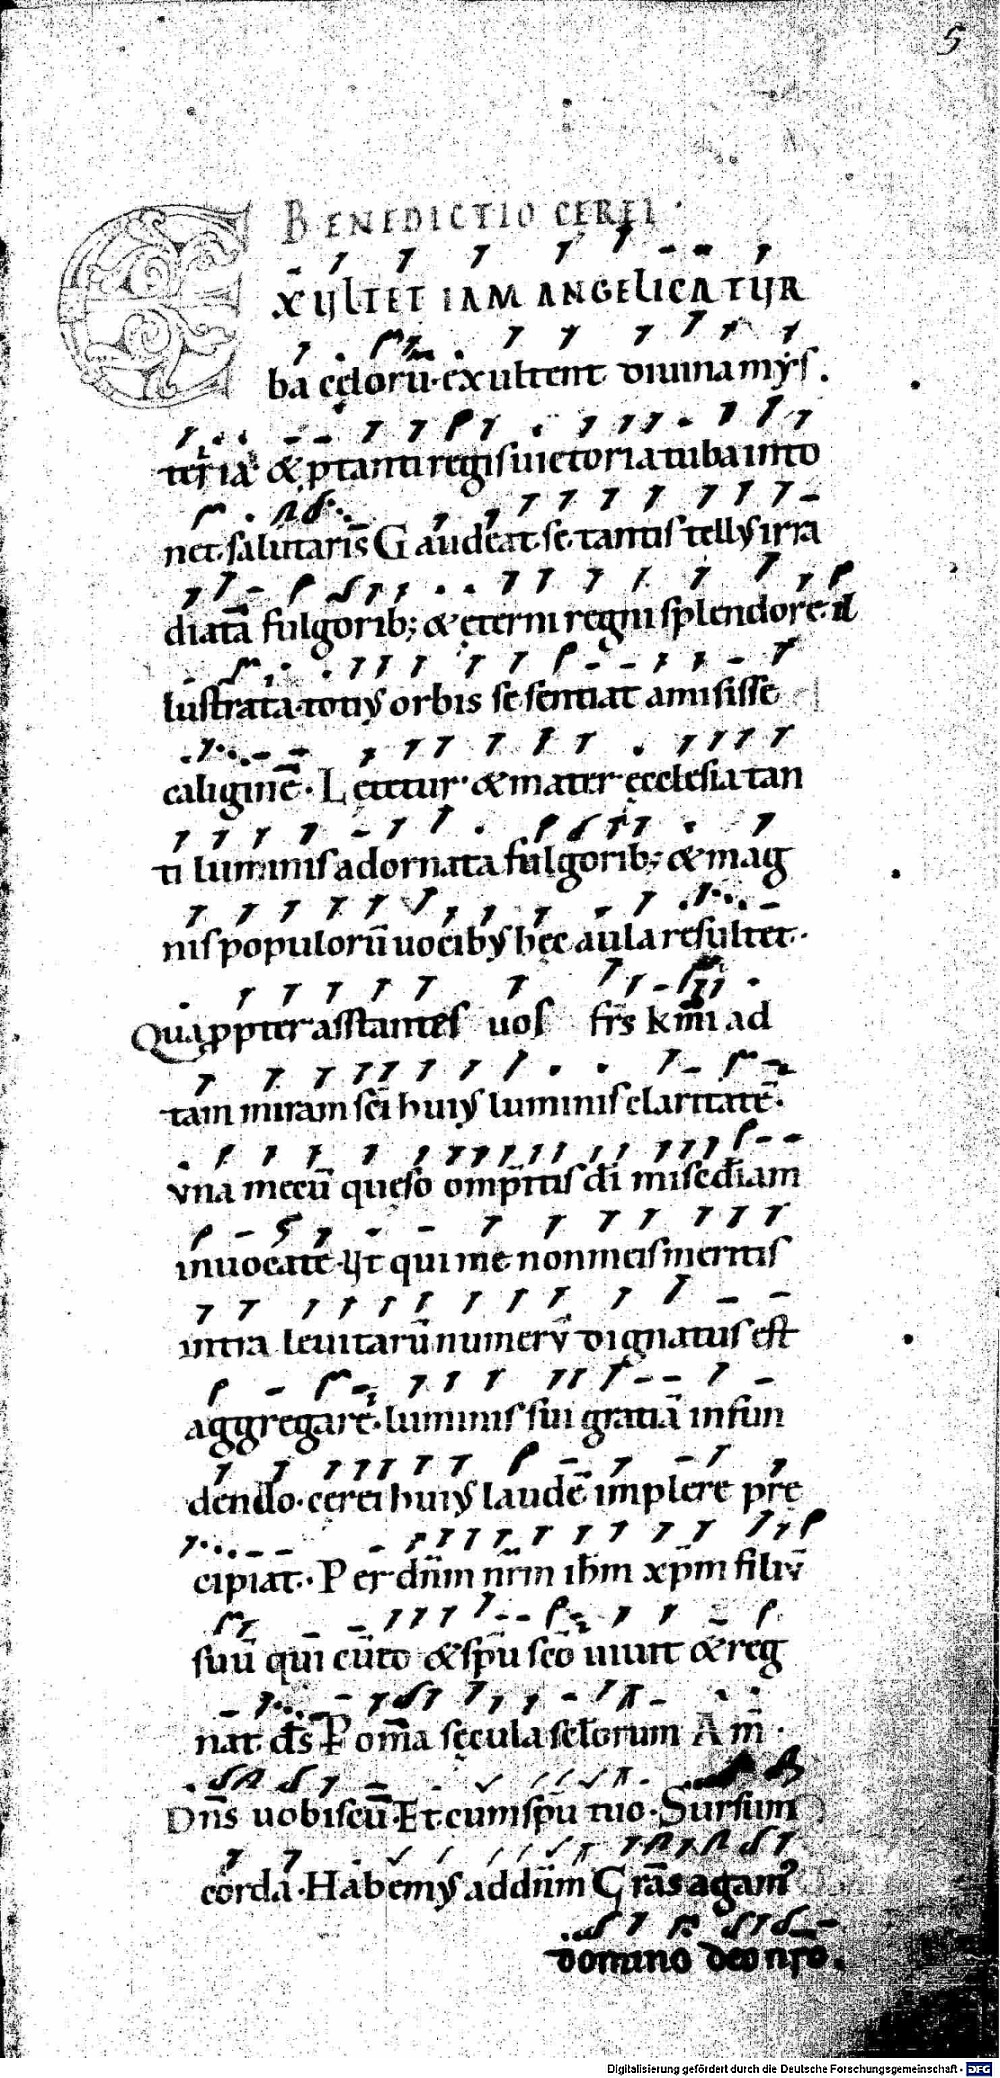 5
BENEDICTIO CEREI.
EXULTET IAM ANGELICA TUR
ba cęlorū. exultent diuina mys.
teria & ptanti regis uictoria tuba into
net salutaris̄ Gaudeat se tantis tellus irra
diatā fulgorib; & ęterni regni splendore il
lustrata. totius orbis se sentiat amisisse
caliginē. Lętetur & mater ęcclesia tan
ti luminis adornata fulgorib; & mag
nis populorū uocibus hęc aula resultet.
Quapropter asstantes uos frs̄ km̄i ad
tam miram sc̄i huius luminis claritatē.
Vna mecū queso omp̄tis dī misc̄diam
inuocate. Ut qui me non meis meritis
intra leuitarū numerū dignatus est
aggregare. luminis sui gratiā infun
dendo. cerei huius laudē implere pre
cipiat. Per dn̄m nr̄m ihm̄ xp̄m filiū
suū qui cū to & sp̄u sc̄o uiuit & reg
nat ds̄ P om̄a sęcula sc̄lorum Am̄.
Dn̄s uobiscū. Et cum sp̄u tuo. Sursum
corda. Habemus ad dn̄m Grā̄s agam᾿
domino deo nr̄o.
Digitalisierung gefördert durch die Deutsche Forschungsgemeinschaft - DFG